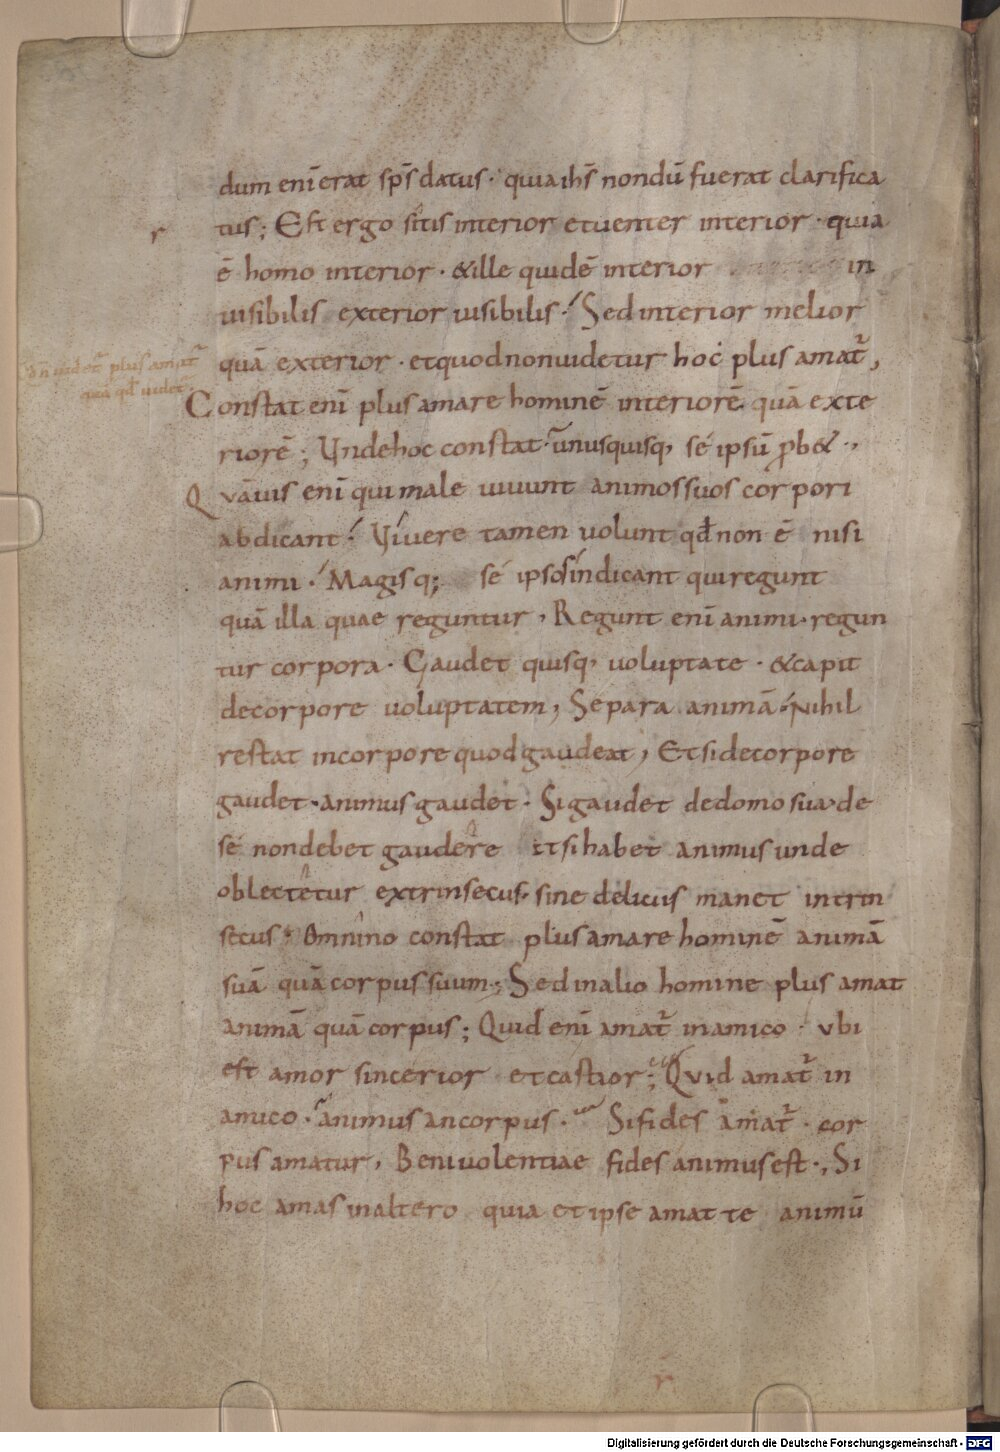 dum enī erat sp̄s datus · quia ih̄s nondū fuerat clarifica
tus ; Est ergo sitis interior et uenter interior · quia
r
ē homo interior · & ille quidē interior in
uisibilis exterior uisibilis · Sed interior melior
quā exterior · et quod non uidetur hoc plus amat᷑,
plus amat᷑
quā qđ uidet᷑
Constat enī plus amare hominē interiorē quā exte
riorē ; Unde hoc constat · unusquisq, sé ipsū ꝓb& ·,
Quāuis enī qui male uiuunt animos suos corpori
abdicant · Viuere tamen uolunt qđ non ē nisi
animi · Magisq; sé ipsos indicant qui regunt
quā illa quae reguntur, Regunt enī animi · regun
tur corpora · Gaudet quisq, uoluptate · & capit
de corpore uoluptatem, Separa animā · Nihil
restat in corpore quod gaudeat, Et si de corpore
gaudet · animus gaudet · Si gaudet de domo sua · de
sé non debet gaudere Et si habet animus unde
oblectetur extrinsecus · sine deliciis manet intrin
secus · Omnino constat plus amare hominē animā
suā quā corpus suum ; Sed in alio homine plus amat
animā quā corpus ; Quid enī amat᷑ in amico · ubi
est amor sincerior et castior ; Quid amat᷑ in
amico · animus an corpus · Si fides amat᷑ · cor
pus amatur, Beniuolentiae fides animus est ·, Si
hoc amas in altero quia et ipse amat te animū
r
Digitalisierung gefördert durch die Deutsche Forschungsgemeinschaft - DFG